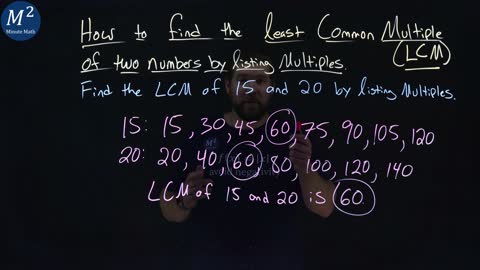 M²
Minute Math
How to find the least Common Multiple
(LCM)
of two numbers by listing Multiples.
Find the LCM of 15 and 20 by listing Multiples.
15: 15, 30, 45, 60, 75, 90, 105, 120
20: 20, 40, 60, 80, 100, 120, 140
M²
avoid negativity
LCM of 15 and 20 is 60.